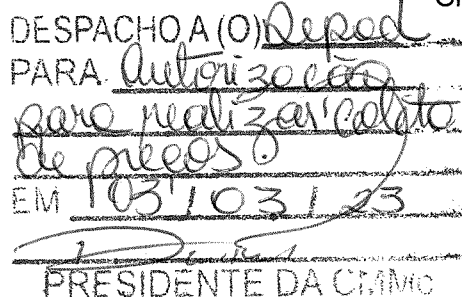 DESPACHO A (O) Depad
PARA Autorização
para realizar coleta
de preços.
EM 03/03/23
PRESIDENTE DA CMMC